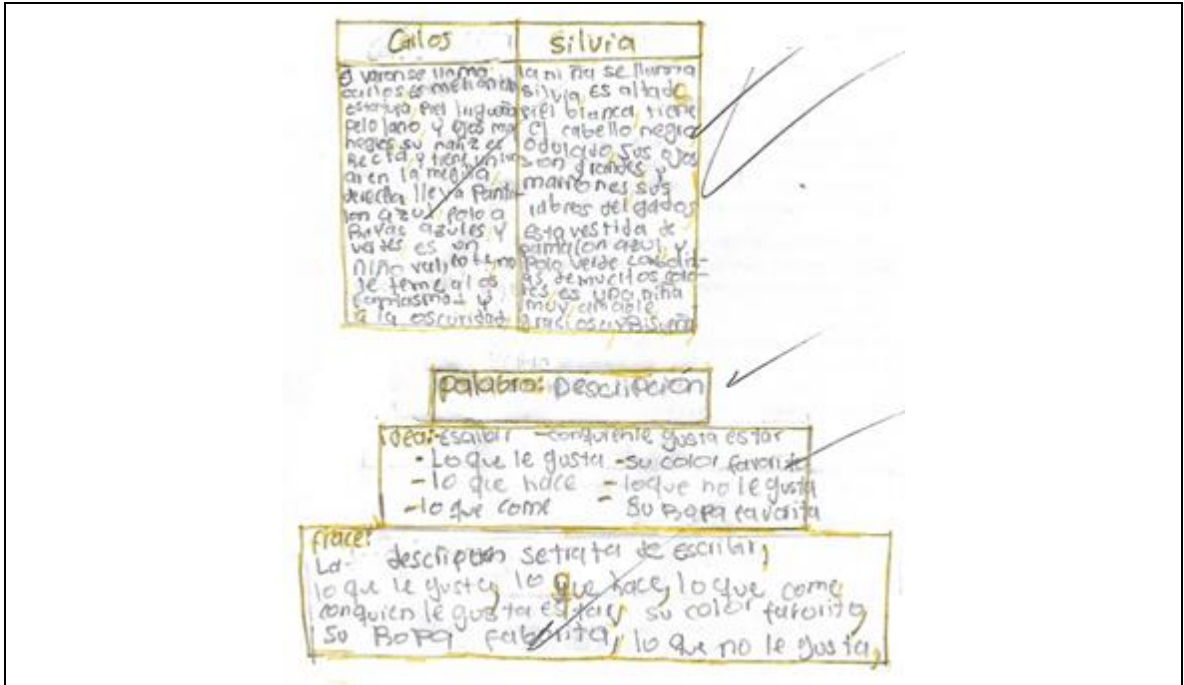 Carlos
El varon se llama
carlos es mediano de
estatura, piel trigueña
pelo lano, y ojos ma
negros su nariz es
Recta, y tiene un lun
ar en la megilla
derecha lleva Panta-
lon azul, Polo a
Rayas azules y
verdes es un
niño valiente, no
le teme a los
fantasmas y
a la oscuridad
silvia
la ni ña se llama
silvia, es alta de
piel blanca, tiene
el cabello negro
odulado, sus ojos
son grandes y
marrones sus
labres delgados
esta vestida de
pantalon azul, y
Polo verde con bolit-
as de muchos colo-
res es una niña
muy amable
graciosa y Risueña
palabra: Descripción
idea: -Escribir -conquiente gusta estar
- Lo que le gusta -su color favorito
- lo que hace - loque no le gusta
-lo que come - Su Ropa favorita
frace:
La descripción se trata de escribir,
lo que le gusta, lo que hace, lo que come
conquien le gusta estar, su color favorito,
Su Ropa faborita, lo que no le gusta,